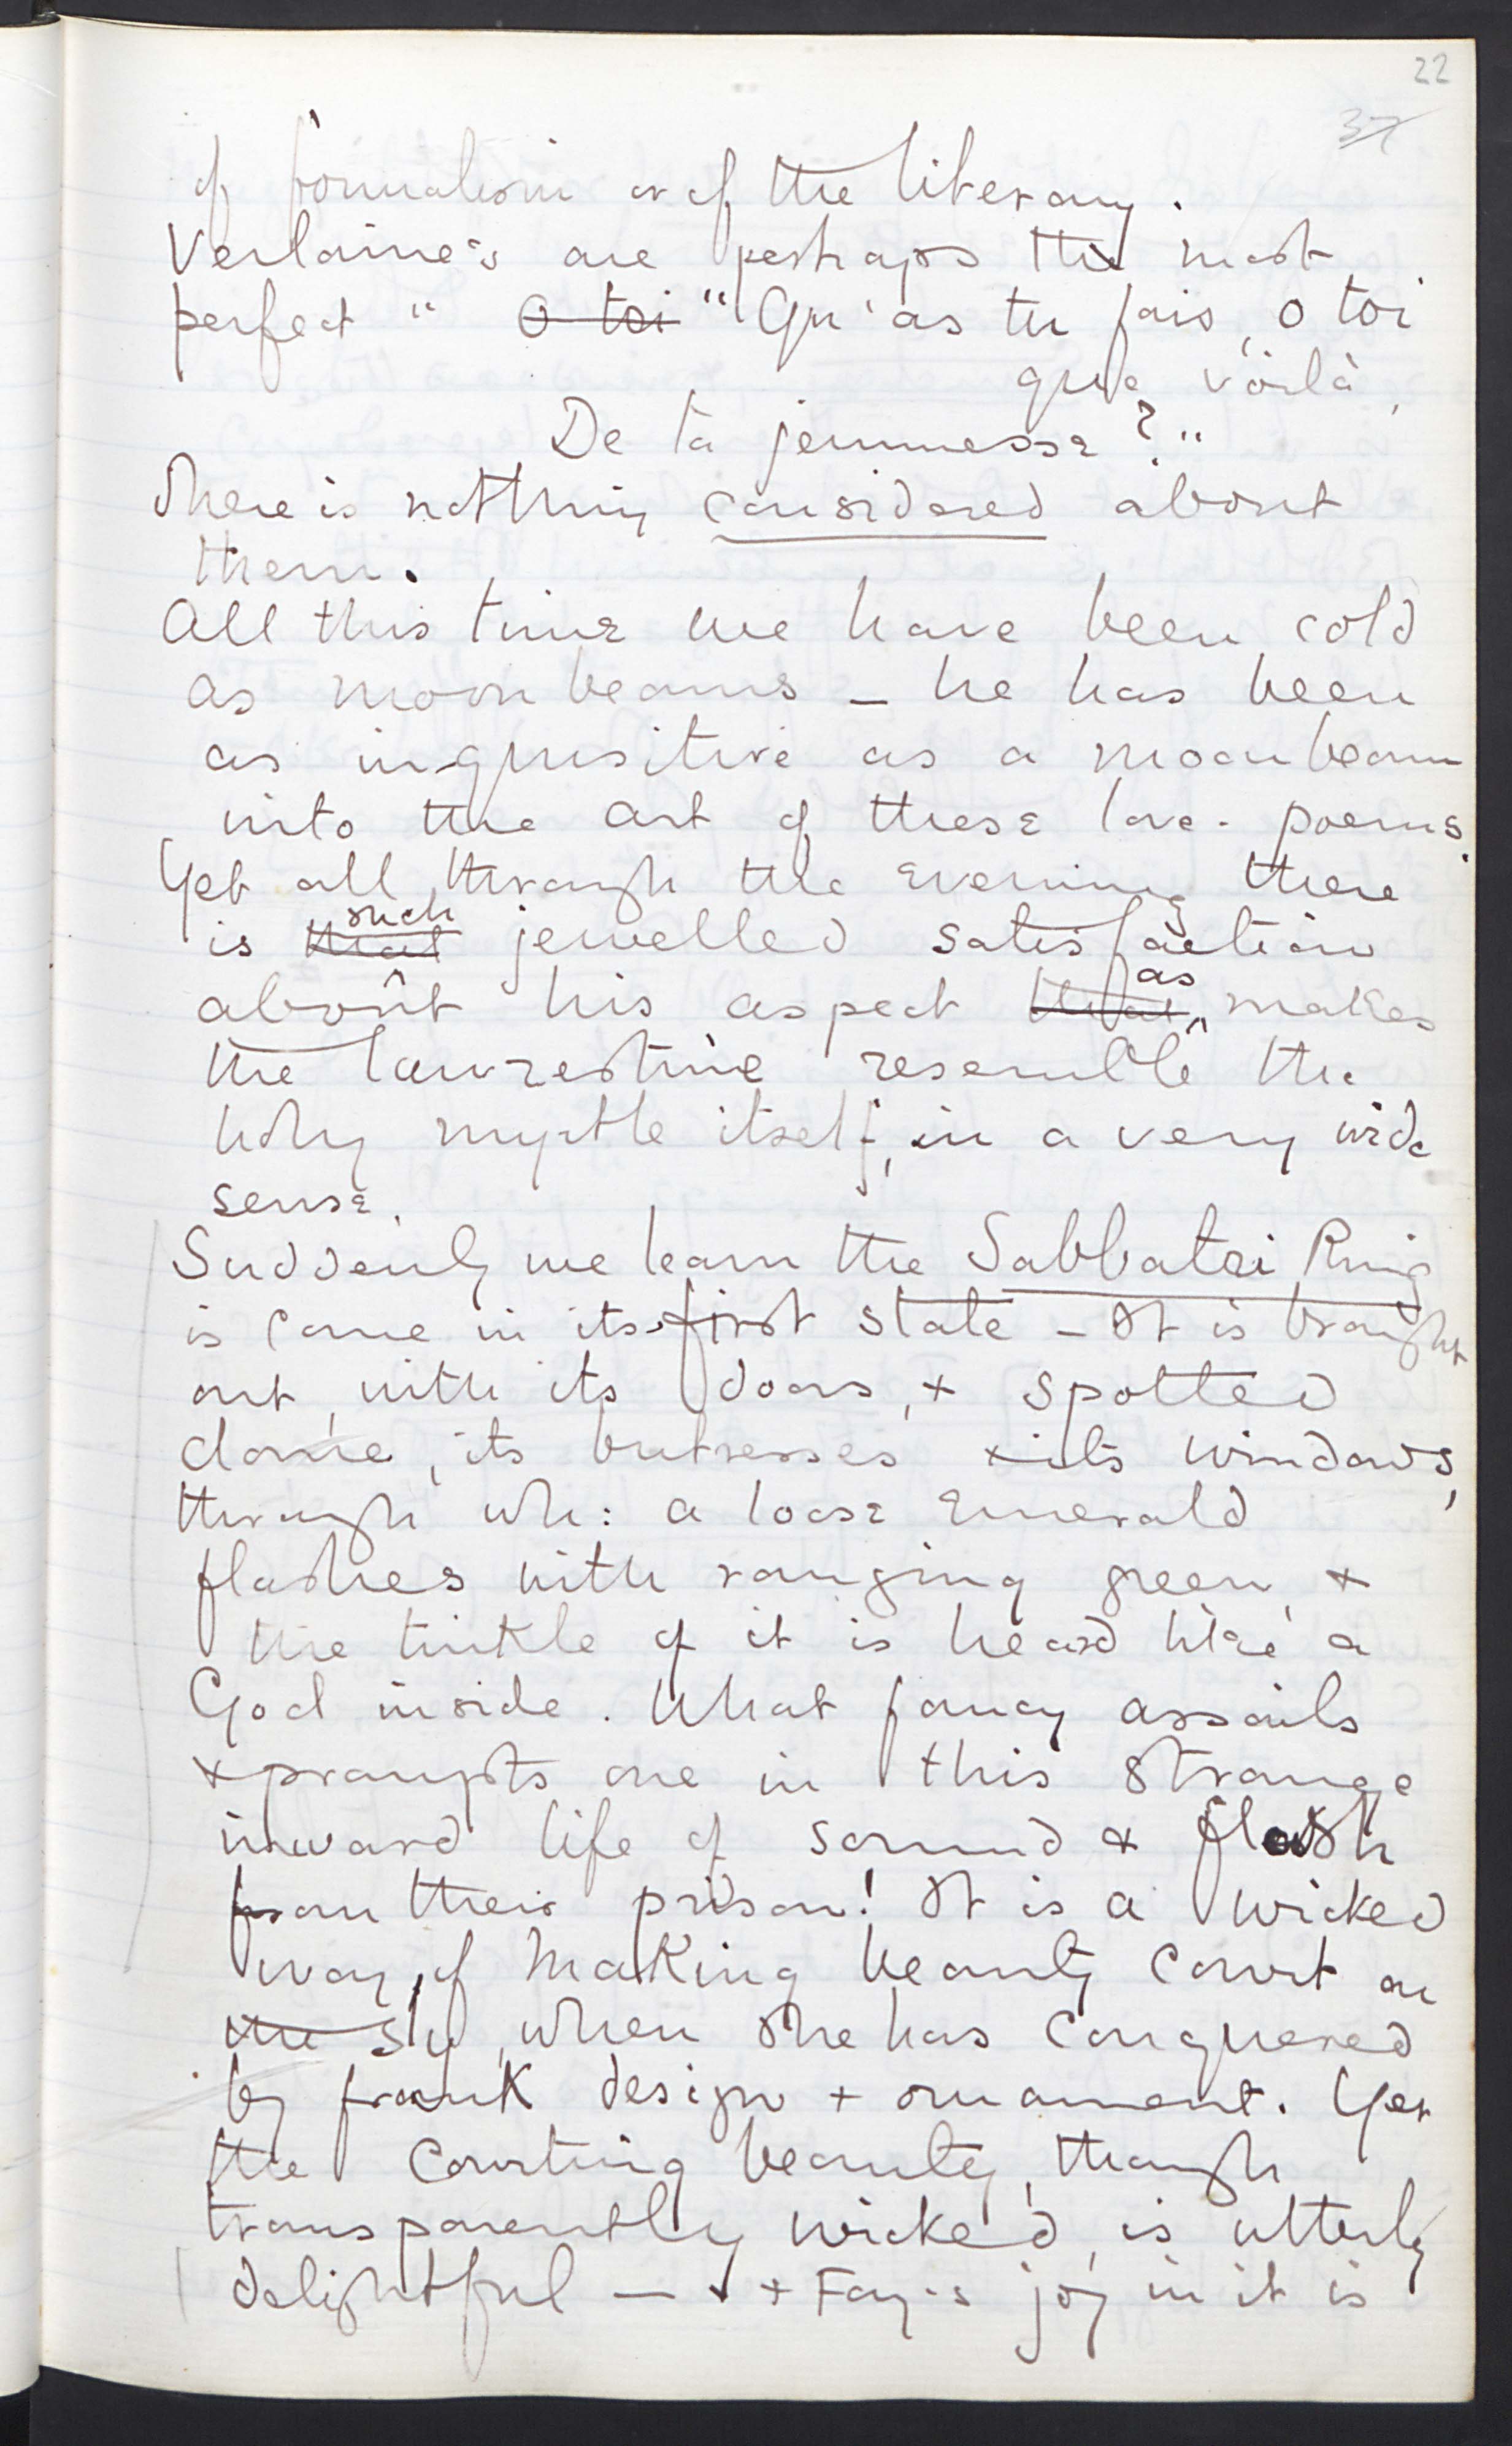 22
37
of formalism or of the literary.
Verlaine's are perhaps the most
perfect " O toi " Qu'as tu fais, O toi
que voilà,
De ta jeunnesse?"
There is nothing considered about
them.
All this time we have been cold
as moonbeams – he has been
as inquisitive as a moonbeam
into the art of these love-poems.
Yet all through the evening there
such
is that jewelled satisfaction
as
about his aspect that makes
the laurestine resemble the
holy myrtle itself, in a very wide
sense.
Suddenly we learn the Sabbatai Ring
is come in its first state – It is brought
out, with its doors, + spotted
dome, its butresses + its windows,
through wh: a loose Emerald
flashes with ranging green, +
the tinkle of it is heard like a
God inside. What fancy assails
+ prompts one in this strange
inward life of sound + flash
from their prison! It is a wicked
way of making beauty court on
the sly, when she has conquered
by frank design + ornament. Yet
the courting beauty, though
transparently wicked, is utterly
delightful — + Fay's joy in it is